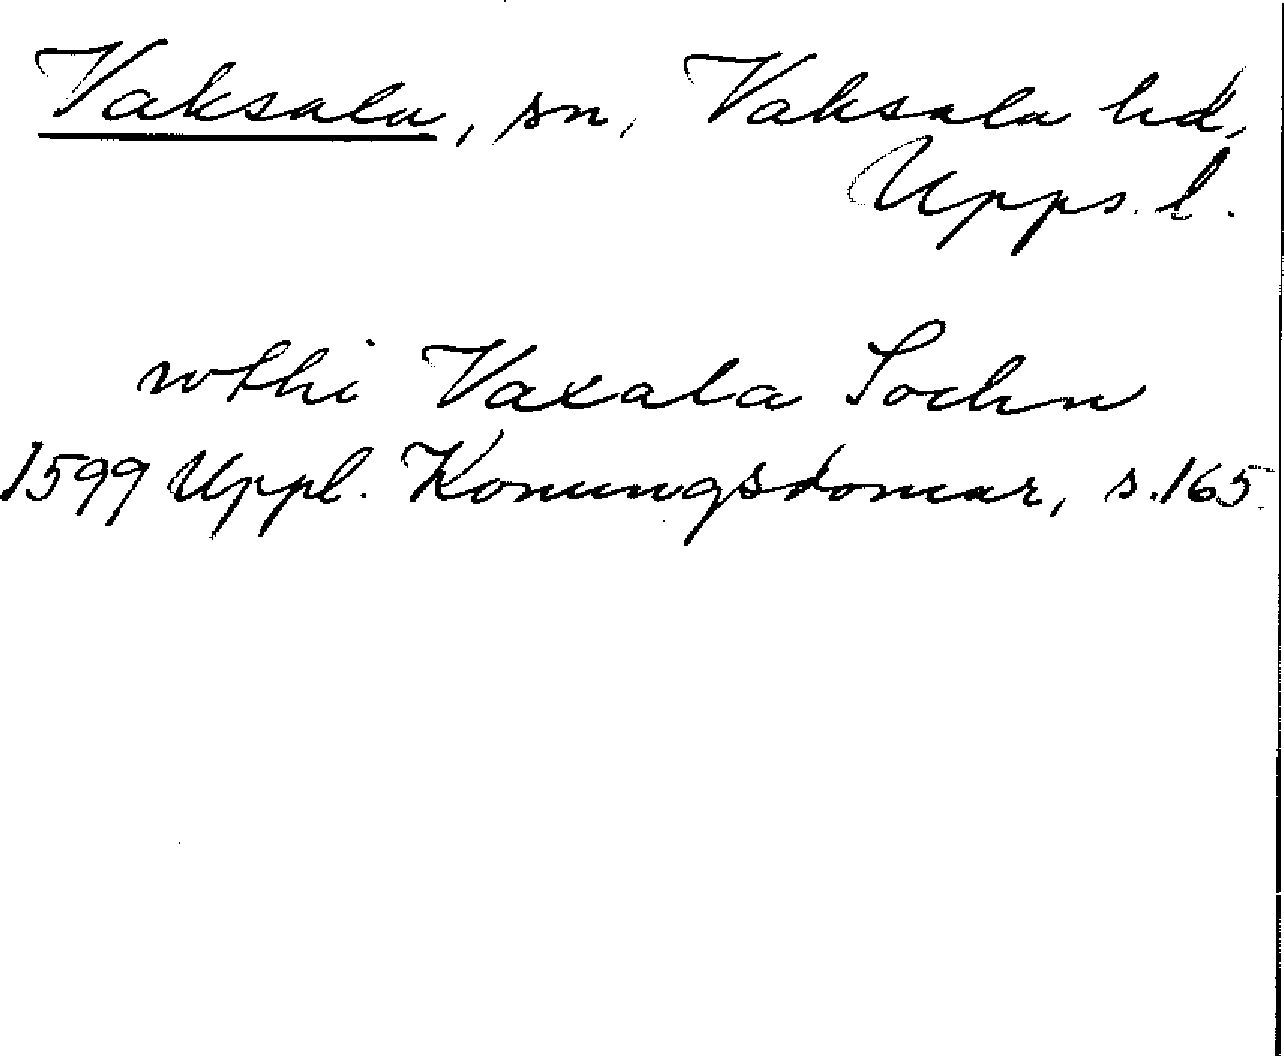 Vaksala, sn, Vaksala hd,
Upps. l.
wthi Vaxala Sochn
1599 Uppl. Konungsdomar, s.165.